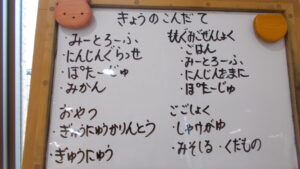 きょうのこんだて
・みーとろーふ
・にんじんぐらっせ
・ぽたーじゅ
・みかん
おやつ
・ぎゅうにゅうかりんとう
・ぎゅうにゅう
もぐもぐごぜんしょく
・ごはん
・みーとろーふ
・にんじんきまに
・ぽたーじゅ
ごごしょく
・しゃけがゆ
・みそしる・くだもの